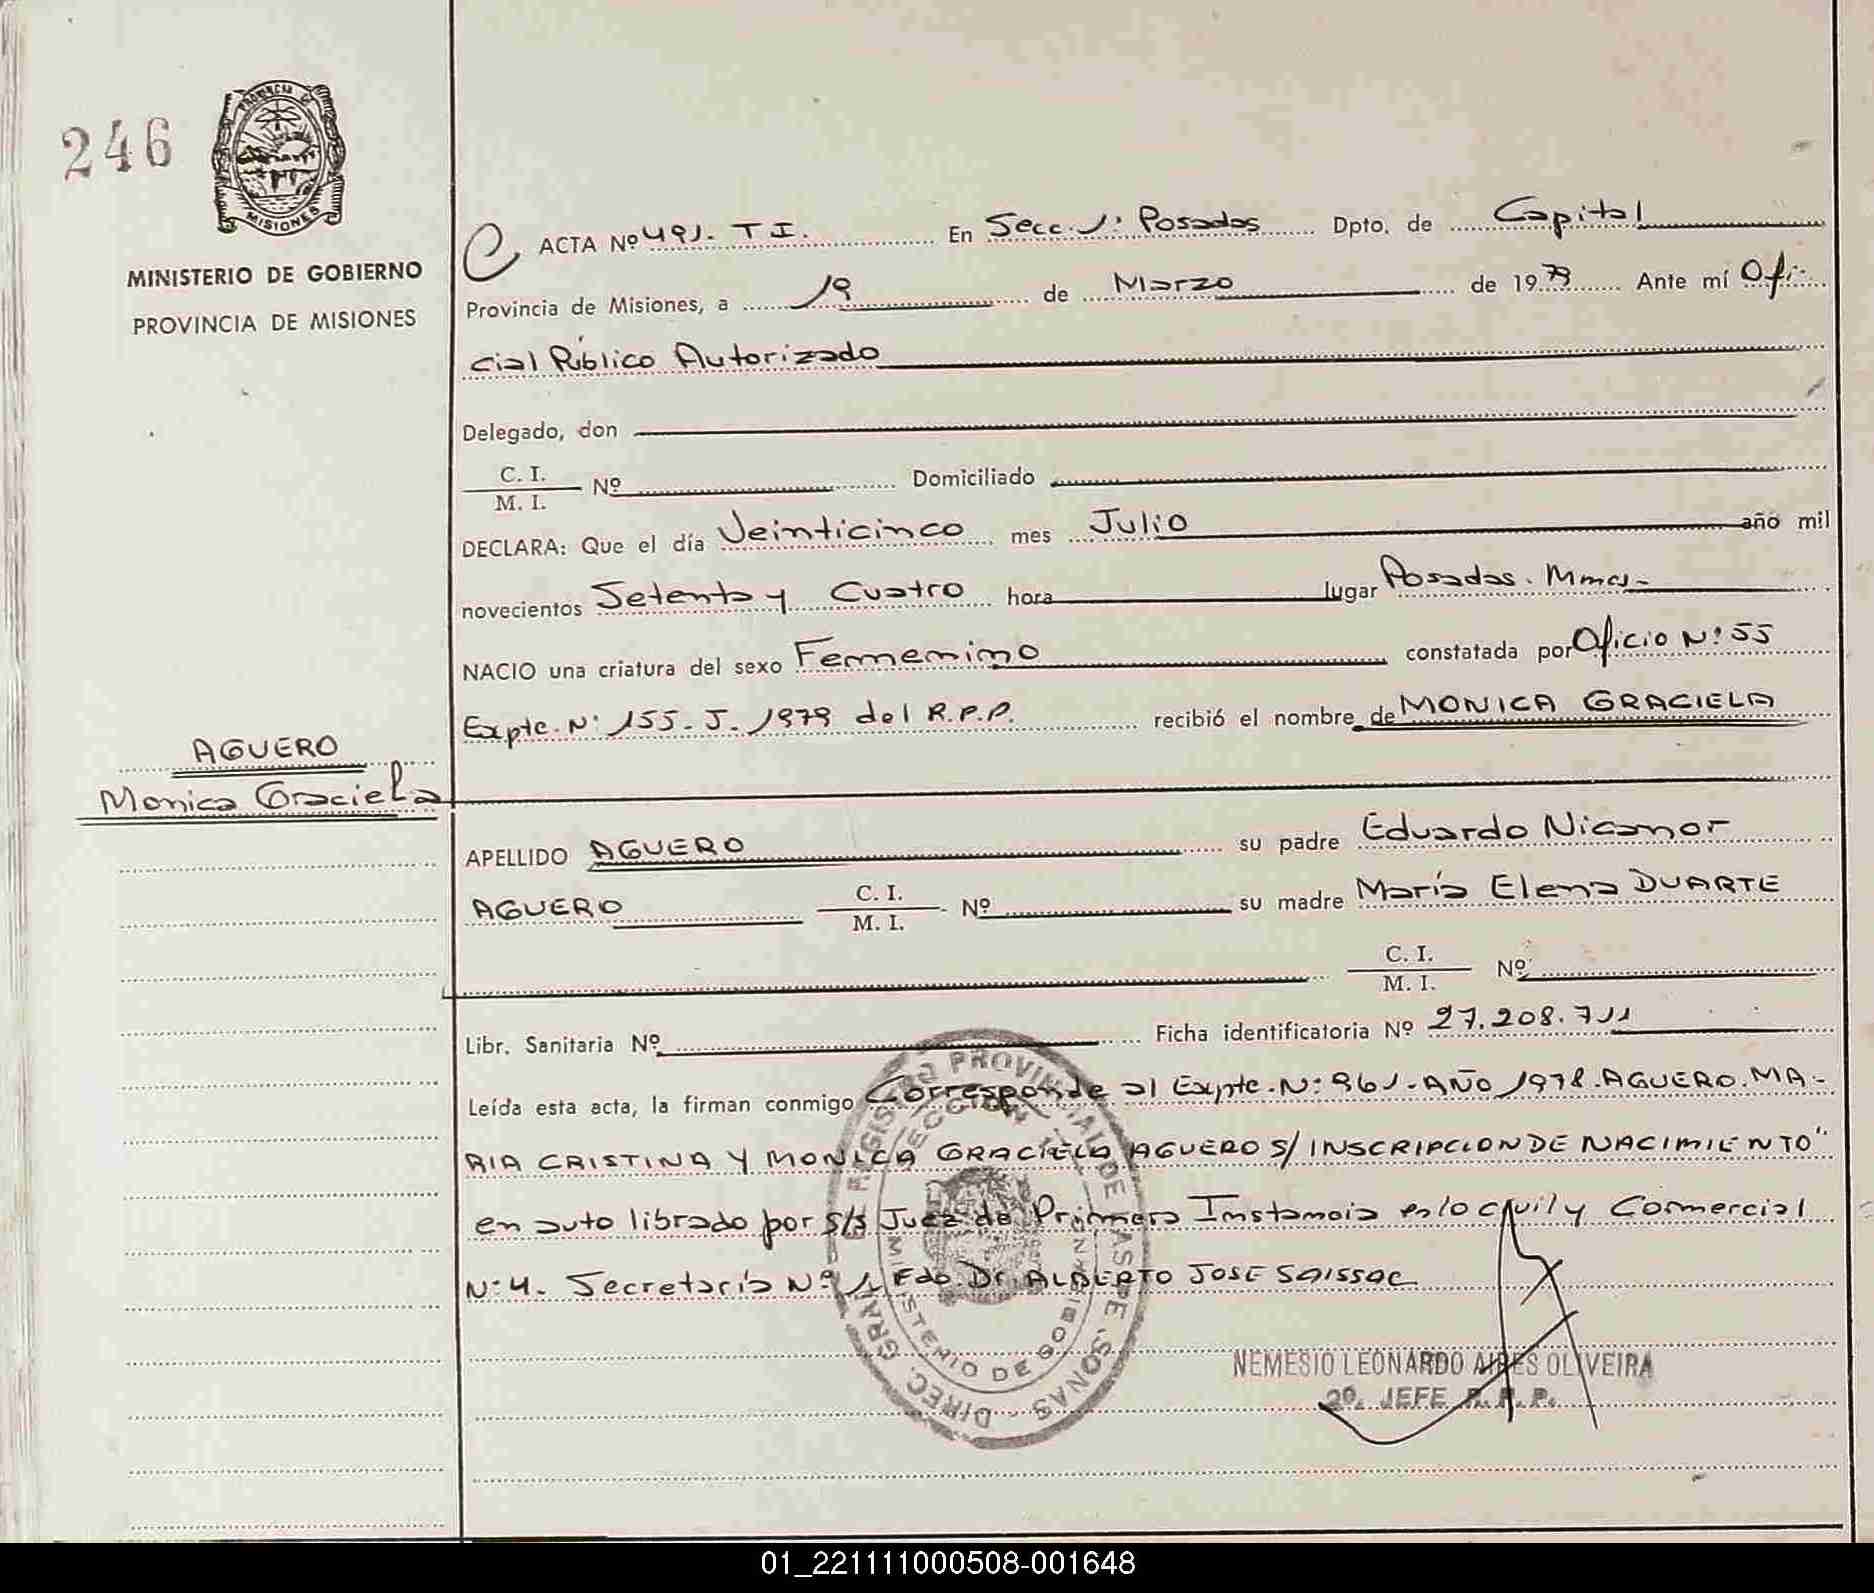 246
PROVINCIA DE
MISIONES
MINISTERIO DE GOBIERNO
PROVINCIA DE MISIONES
AGUERO
Monica Graciela
ACTA Nº 491. T I. En Secc. 1: Posadas Dpto. de Capital
Provincia de Misiones, a 19 de Marzo de 1979 Ante mí Ofi-
cial Público Autorizado
Delegado, don
C. I.
M. I. Nº Domiciliado
DECLARA: Que el día Veinticinco mes Julio año mil
novecientos Setenta y Cuatro hora lugar Posadas. Mnes-
NACIO una criatura del sexo Femenino constatada por Oficio Nº 55
Expte. Nº 155. J. 1979 del R.P.P. recibió el nombre de MONICA GRACIELA
APELLIDO AGUERO su padre Eduardo Nicanor
AGUERO C. I.
M. I. Nº su madre María Elena DUARTE
C. I.
M. I. Nº
Libr. Sanitaria Nº Ficha identificatoria Nº 27.208.711
Leída esta acta, la firman conmigo Corresponde al Expte. Nº 961. AÑO 1978. AGUERO. MA-
RIA CRISTINA Y MONICA GRACIELA AGUERO S/ INSCRIPCION DE NACIMIENTO"
en auto librado por S/S Juez de Primera Instancia en lo Civil y Comercial
Nº 4. Secretaría Nº 1. Fdo. Dr. ALBERTO JOSE SAISSAC
DIREC. GRAL. REGISTRO PROVINCIAL DE LAS PERSONAS
MINISTERIO DE GOBIERNO
NEMESIO LEONARDO AIRES OLIVEIRA
2º. JEFE R. P. P.
01_221111000508-001648